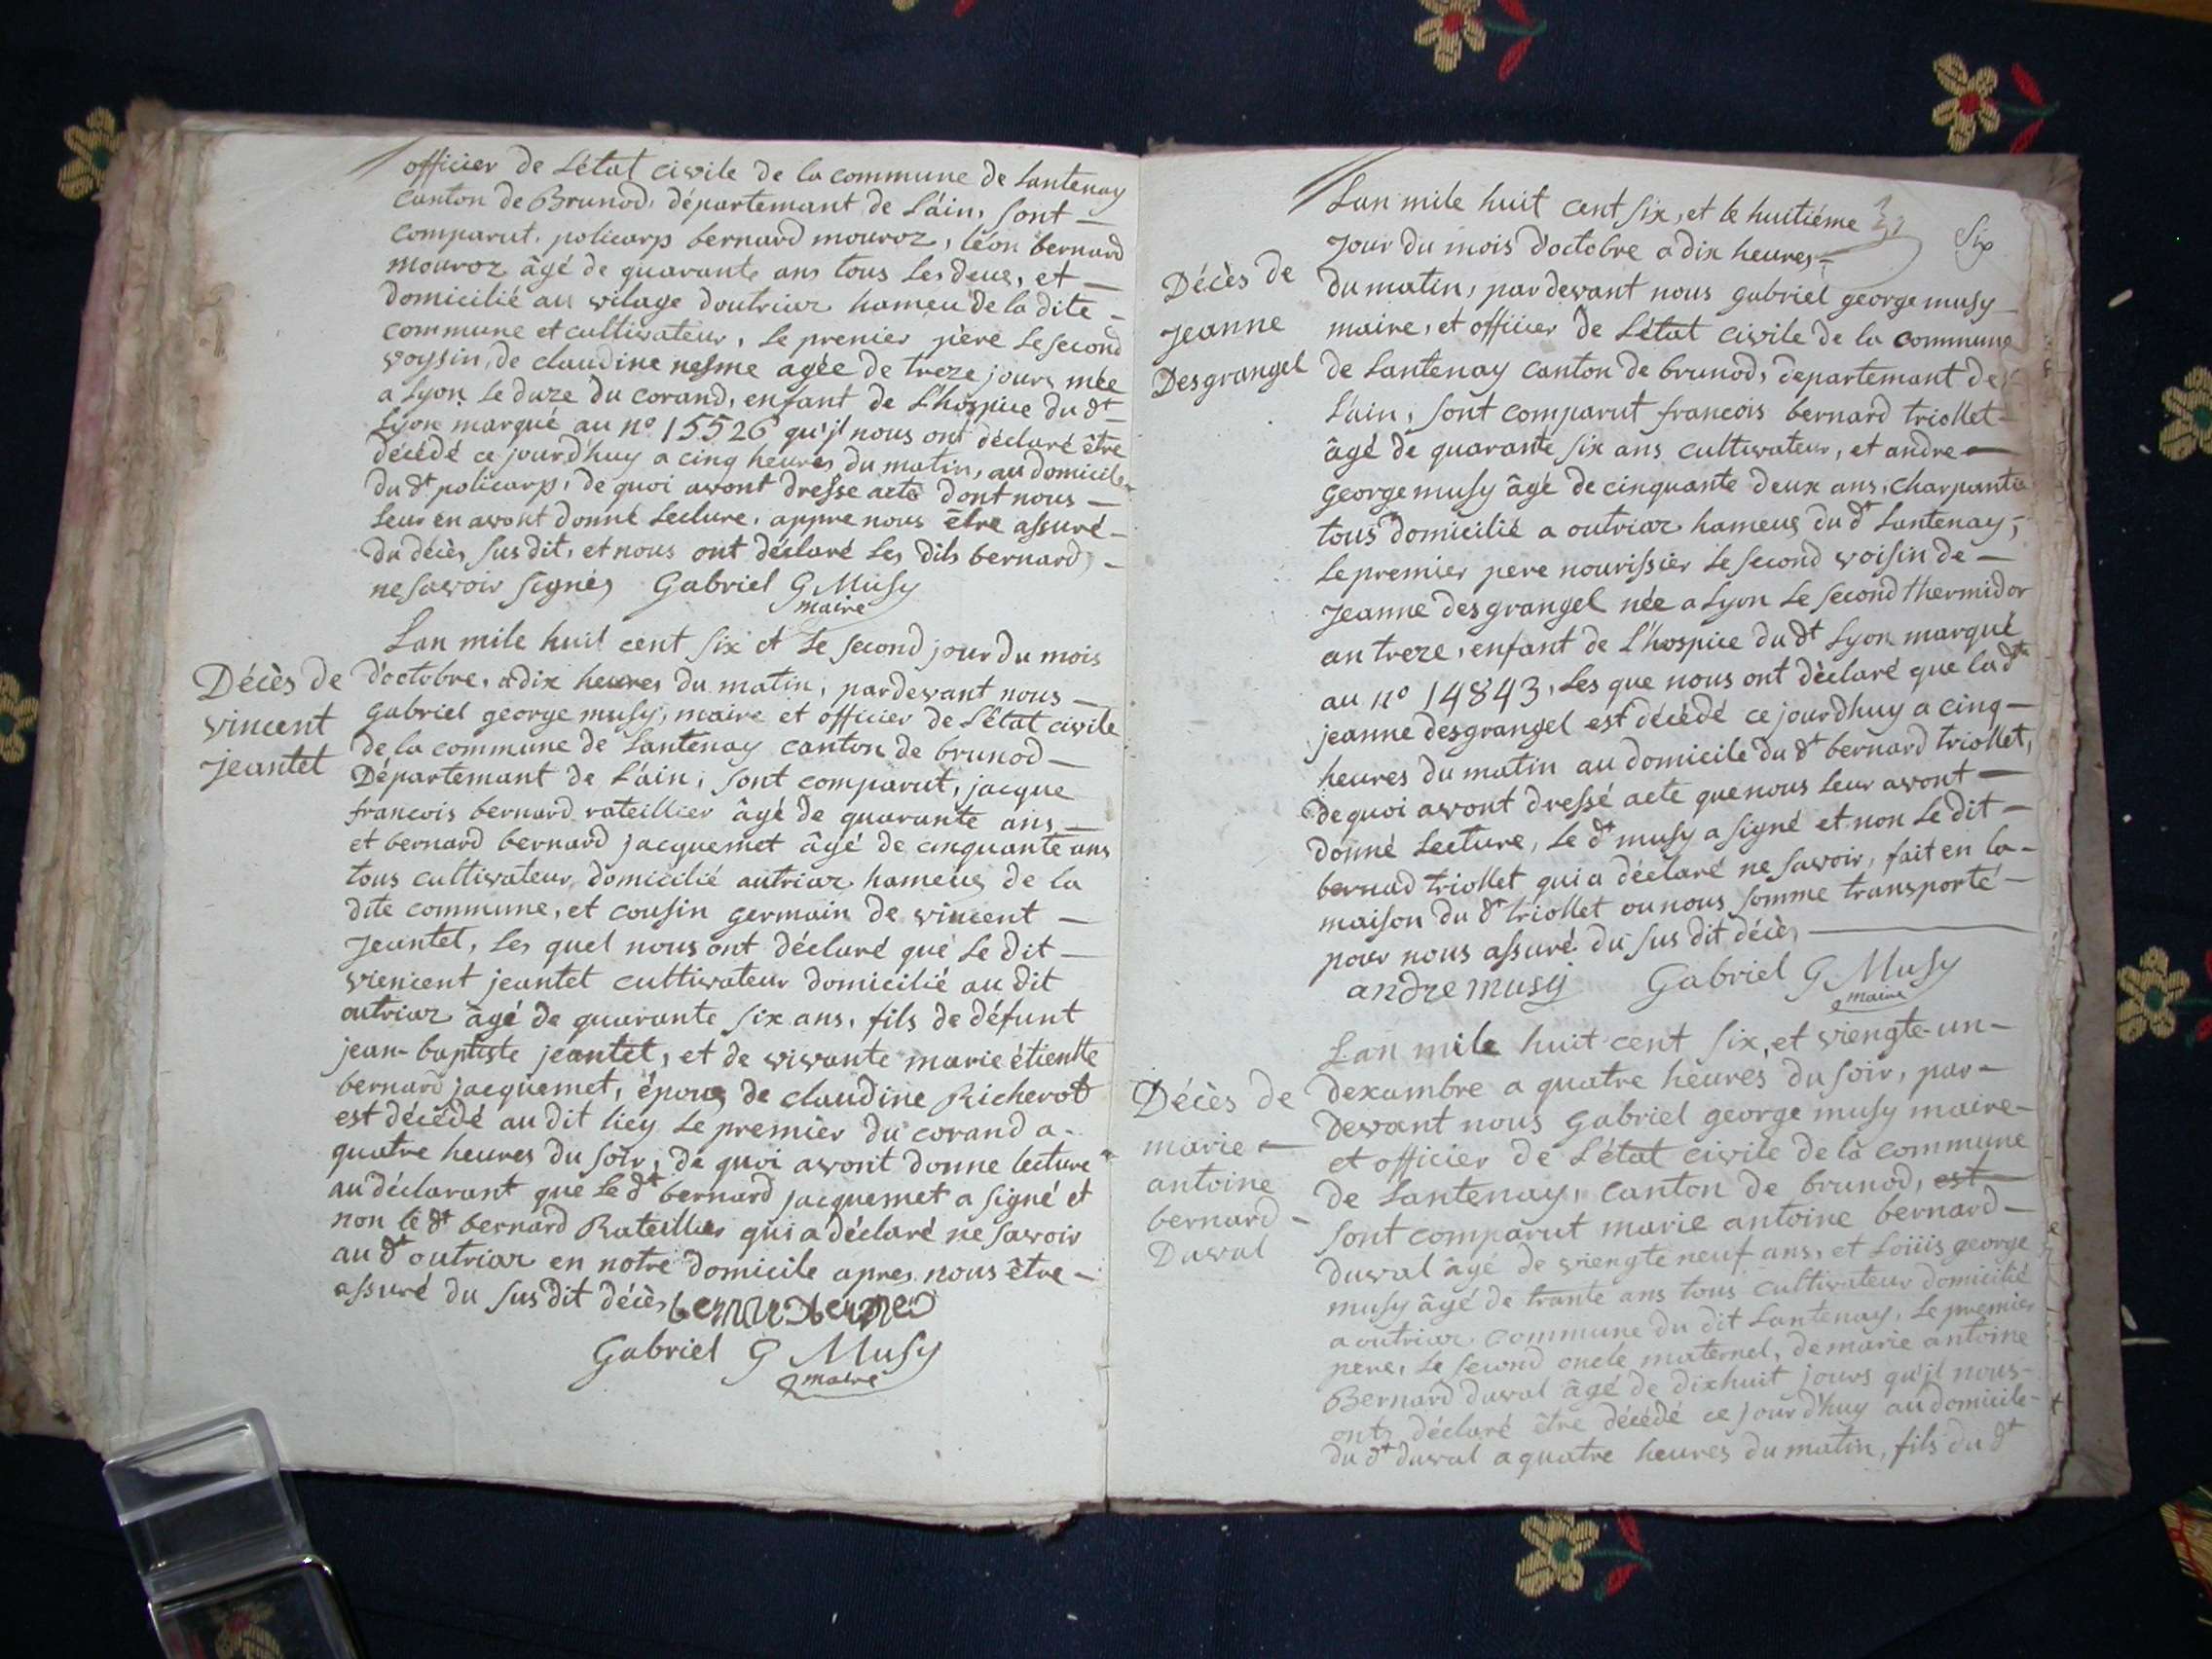 officier de L'état civile de la commune de Lantenay
Canton de Brunod, département de L'ain, sont —
comparut. policarp bernard mouroz, léon bernard
mouroz âgé de quarante ans tous les deus, et —
domicilié au vilage doutriaz hameu de la dite —
commune et cultivateur, le premier père le second
voysin, de claudine nesme agée de treze jours née
a Lyon le duze du corand, enfant de L'hospice du dt
Lyon marqué au no 15526 qu'jl nous ont déclaré être
décédé ce jourd'huy a cinq heures du matin, au domicile
du dt policarp, de quoi avont dresse acte dont nous —
leur en avont donné lecture, appre nous être assuré —
du décès sus dit, et nous ont déclaré les dits bernard —
ne savoir signés Gabriel G Musy
maire
Lan mile huit cent six et le second jour du mois
Décès de
vincent
jeantet
d'octobre, a dix heures du matin, pardevant nous —
gabriel george musy, maire et officier de L'état civile
de la commune de Lantenay canton de brunod —
Département de L'ain, sont comparut, jacque
francois bernard rateillier âgé de quarante ans —
et bernard bernard jacquemet âgé de cinquante ans
tous cultivateur domicilié autriaz hameus de la
dite commune, et cousin germain de vincent —
Jeantet, les quel nous ont déclaré que le dit —
viencent jeantet cultivateur domicilié au dit
outriaz âgé de quarante six ans, fils de défunt
jean-baptiste jeantet, et de vivante marie étienttte
bernard jacquemet, épous de claudine Richerot
est décédé au dit liey le premier du corand a -
quatre heures du soir, de quoi avont donne lecture
au déclarant que le dt bernard jacquemet a signé et
non le dt bernard Rateillier qui a déclaré ne savoir
au dt outriaz en notre domicile apres nous être —
assuré du sus dit décès
Gabriel G Musy
maire
Six
Lan mile huit cent six, et le huitiéme
Jour du mois d'octobre a dix heures —
Décès de
Jeanne
Desgrangel
du matin, par devant nous gabriel george musy —
maire, et officier de L'état civile de la commune
de Lantenay canton de brunod, departemant de
L'ain, sont comparut francois bernard triollet —
âgé de quarante six ans cultivateur, et andre —
george musy âgé de cinquante deux ans, charpantié
tous domicilié a outriaz hameus du dt Lantenay,
le premier pere nourissier le second voisin de —
Jeanne desgrangel née a Lyon le second thermidor
an treze, enfant de L'hospice du dt Lyon marqué
au no 14843, les que nous ont déclaré que la dte
jeanne desgrangel est décédé ce jourdhuy a cinq —
heures du matin au domicile du dt bernard triollet,
de quoi avont dressé acte que nous leur avont —
donné lecture, le dt musy a signé et non le dit —
bernad triollet qui a déclaré ne savoir, fait en la —
maison du dt triollet ou nous somme transporté —
pour nous assuré du sus dit décès —
andre musy Gabriel G Musy
maire
Lan mile huit cent six, et viengte-un —
Décès de
marie —
antoine
bernard —
Duval
dexambre a quatre heures du soir, par —
devant nous gabriel george musy maire —
et officier de L'état civile de la commune
de Lantenay, canton de brunod, est
sont comparut marie antoine bernard —
duval âgé de viengte neuf ans, et Loüis george
musy âgé de trante ans tous cultivateur domicilié
a outriaz commune du dit Lantenay, le premier
pere, le second oncle maternel, de marie antoine
Bernard duval âgé de dixhuit jours qu'jl nous —
onts déclaré être décédé ce jourd'huy au domicile —
du dt duval a quatre heures du matin, fils du dt